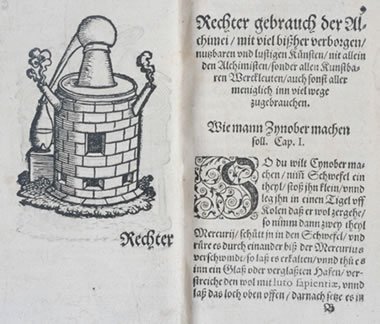 Rechter
Rechter gebrauch der Al-
chimei / mit viel bißher verborgen /
nutzbaren vnd lustigen Künsten / nit allein
den Alchimisten / sonder allen Kunstba-
ren Werckleuten / auch sonst aller
meniglich inn viel wege
zugebrauchen.
Wie mann Zynober machen
soll. Cap. I.
SO du wilt Cynober ma-
chen / nim̄ Schwefel ein
theyl / stoß jhn klein / vnnd
leg jhn in einen Tigel vff
Kolen daß er wol zergehe /
so nimm dann zwey theyl
Mercurij / schütt jn in den Schwefel / vnd
rüre es durch einander biß der Mercurius
verschwindt / so laß es erkalten / vnnd thů es
inn ein Glaß oder verglaßten Hafen / ver-
streiche den wol mit luto sapientiæ, vnnd
laß das loch oben offen / darnach setze es in